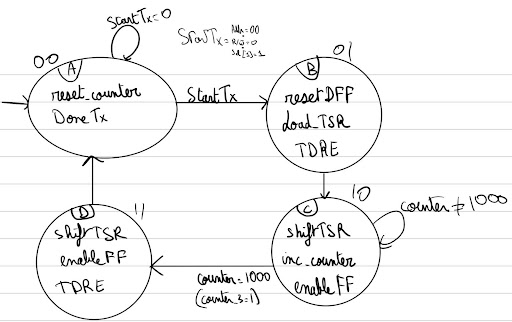 StartTx=0
StartTx = Addr=00
R/W=0
SR[3]=1
00
A
reset_counter
DoneTx
StartTx
01
B
resetDFF
Load_TSR
TDRE
10
C
shiftTSR
inc_counter
enableFF
counter ≠ 1000
counter = 1000
(counter_3=1)
11
D
shiftTSR
enableFF
TDRE